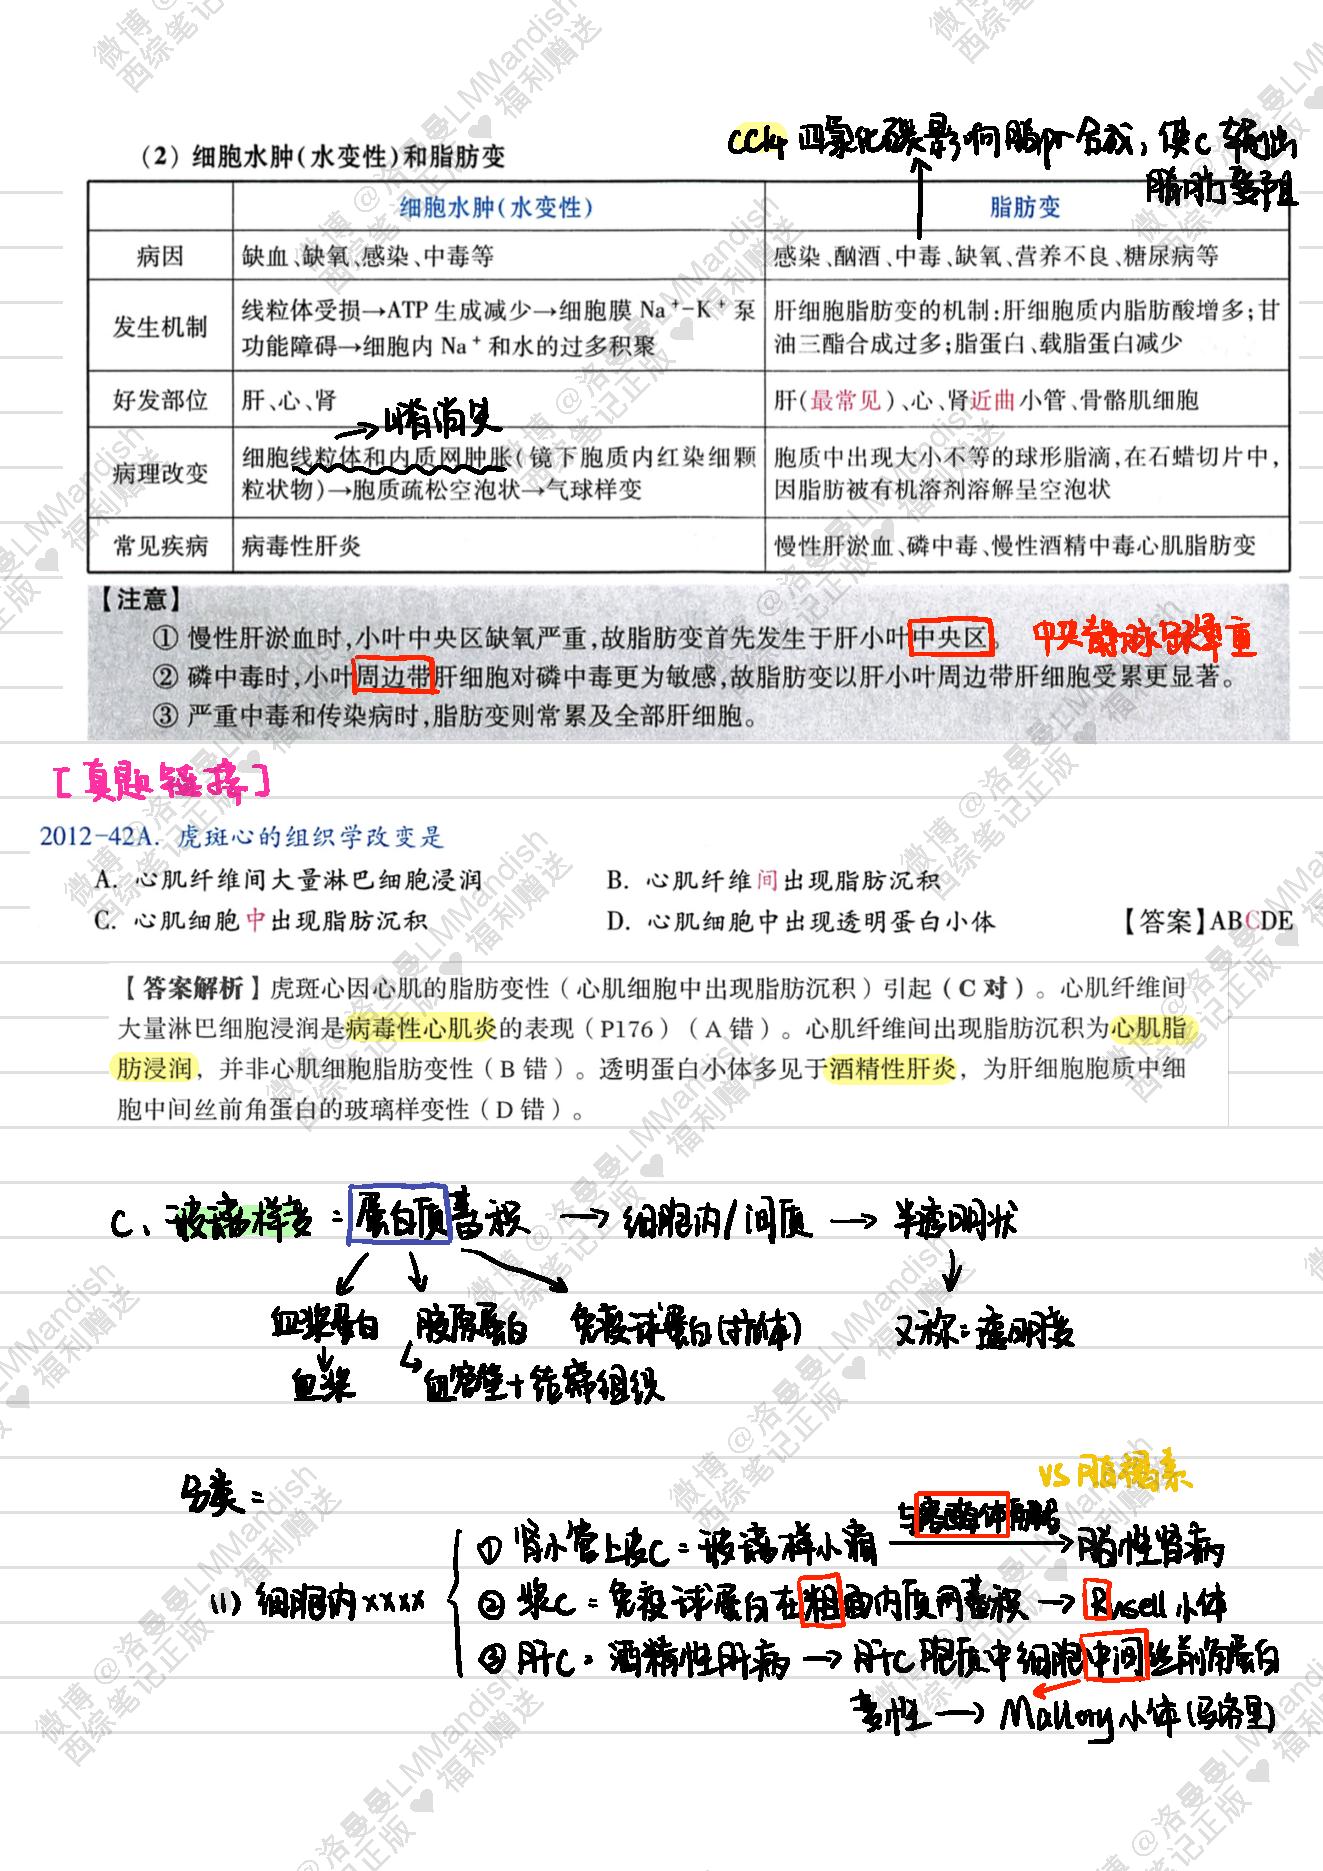 CCl4 四氯化碳影响脂pr合成，使C输出
脂肪受阻
（2）细胞水肿（水变性）和脂肪变
细胞水肿（水变性） 脂肪变
病因 缺血、缺氧、感染、中毒等 感染、酗酒、中毒、缺氧、营养不良、糖尿病等
发生机制 线粒体受损→ATP 生成减少→细胞膜 Na⁺-K⁺ 泵功能障碍→细胞内 Na⁺ 和水的过多积聚 肝细胞脂肪变的机制：肝细胞质内脂肪酸增多；甘油三酯合成过多；脂蛋白、载脂蛋白减少
好发部位 肝、心、肾 肝（最常见）、心、肾近曲小管、骨骼肌细胞
→嵴消失
病理改变 细胞线粒体和内质网肿胀（镜下胞质内红染细颗粒状物）→胞质疏松空泡状→气球样变 胞质中出现大小不等的球形脂滴，在石蜡切片中，因脂肪被有机溶剂溶解呈空泡状
常见疾病 病毒性肝炎 慢性肝淤血、磷中毒、慢性酒精中毒心肌脂肪变
【注意】
① 慢性肝淤血时，小叶中央区缺氧严重，故脂肪变首先发生于肝小叶中央区。 中央静脉缺氧重
② 磷中毒时，小叶周边带肝细胞对磷中毒更为敏感，故脂肪变以肝小叶周边带肝细胞受累更显著。
③ 严重中毒和传染病时，脂肪变则常累及全部肝细胞。
[真题链接]
2012-42A. 虎斑心的组织学改变是
A. 心肌纤维间大量淋巴细胞浸润 B. 心肌纤维间出现脂肪沉积
C. 心肌细胞中出现脂肪沉积 D. 心肌细胞中出现透明蛋白小体 【答案】ABCDE
【答案解析】虎斑心因心肌的脂肪变性（心肌细胞中出现脂肪沉积）引起（C 对）。心肌纤维间
大量淋巴细胞浸润是病毒性心肌炎的表现（P176）（A 错）。心肌纤维间出现脂肪沉积为心肌脂
肪浸润，并非心肌细胞脂肪变性（B 错）。透明蛋白小体多见于酒精性肝炎，为肝细胞胞质中细
胞中间丝前角蛋白的玻璃样变性（D 错）。
C、玻璃样变=蛋白质蓄积 → 细胞内/间质 → 半透明状
血浆蛋白 胶原蛋白 免疫球蛋白(抗体) 又称=透明变
血浆 血管壁+结缔组织
分类=
vs 脂褐素
与溶酶体融合
(1) 细胞内xxxx ① 肾小管上皮C=玻璃样小滴 → 脂性肾病
② 浆C=免疫球蛋白在粗面内质网蓄积 → Rusell小体
③ 肝C=酒精性肝病 → 肝C胞质中细胞中间丝前角蛋白
变性 → Mallory小体(马洛里)
微博 @洛曼曼LMMandish
西综笔记正版♥福利赠送